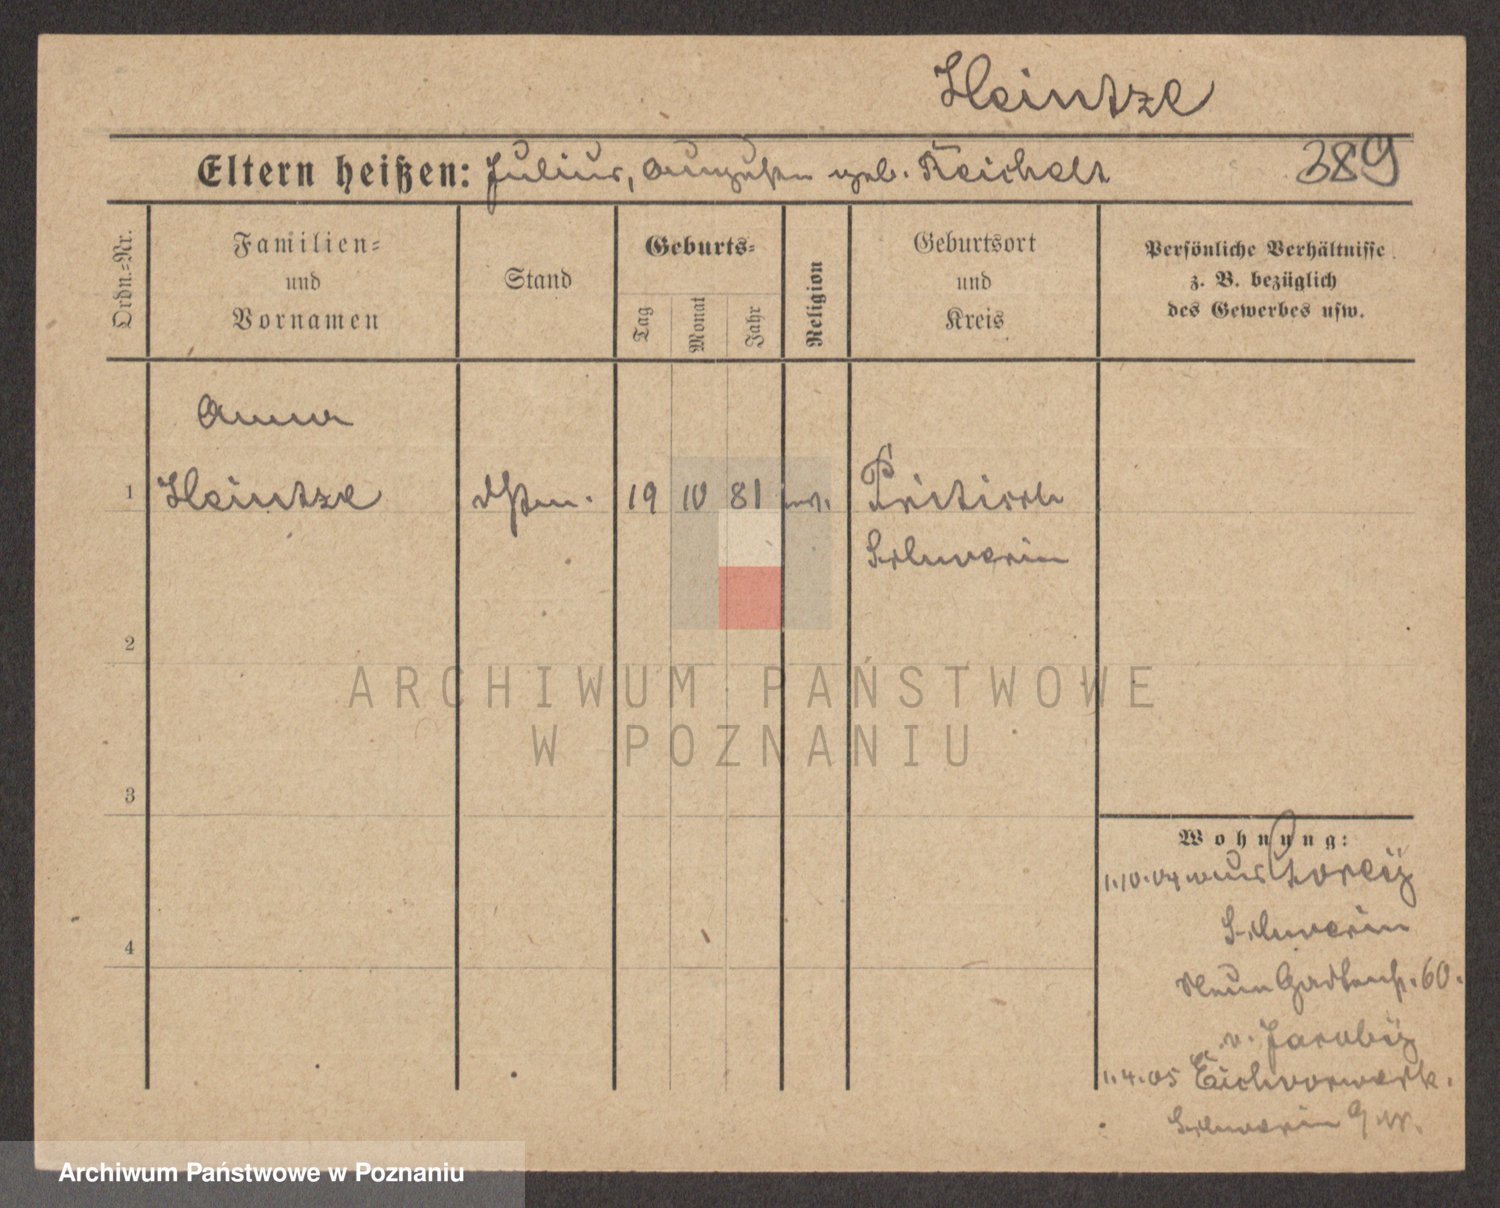 Heintze
Eltern heißen: Julius, Auguste geb. Reichelt 389
Ordn.=Nr.
Familien=
und
Vornamen
Stand
Geburts=
Tag
Monat
Jahr
Religion
Geburtsort
und
Kreis
Persönliche Verhältnisse
z. B. bezüglich
des Gewerbes usw.
Anna
1 Heintze 19 10 81 Pritisch
Schwerin
2
3
4
Wohnung:
1.10.04 aus
Schwerin
60.
1.4.05 Eichvorwerk.
Schwerin a/W.
ARCHIWUM PAŃSTWOWE
W POZNANIU
Archiwum Państwowe w Poznaniu